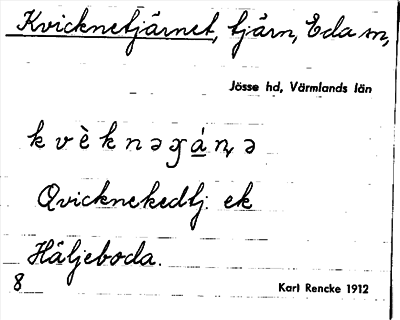 Kvicknetjärnet, tjärn, Eda sn,
Jösse hd, Värmlands län
k v è k n ə g á ṇ ə
Qvicknekedtj: ek
Häljeboda.
8
Karl Rencke 1912